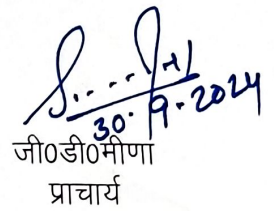 30.9.2024
जी0डी0मीणा
प्राचार्य